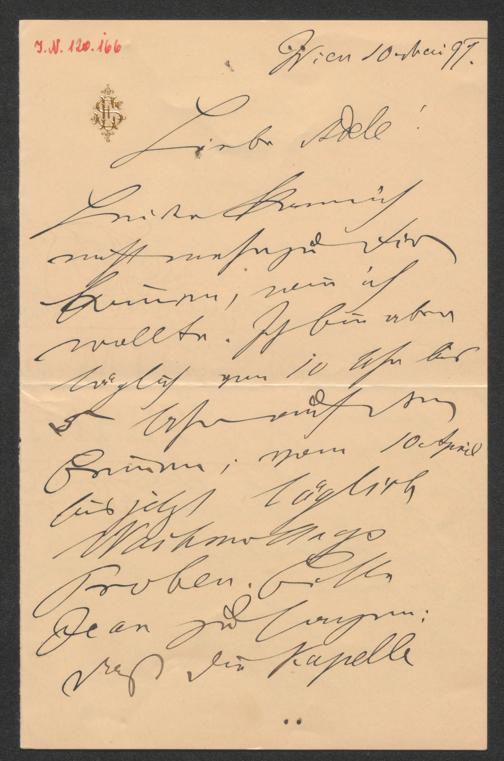 I.N. 120.166
Wien 10 Mai 97.
Liebe Adele!
Leider kann ich
nicht mehr zu Dir
kommen, wenn ich
wollte. Ich bin aber
täglich von 10 Uhr bis
5 Uhr auf den
Beinen; vom 10 April
bis jetzt täglich
Nachmittags
Proben. Bitte
Jean zu sagen:
daß die Kapelle